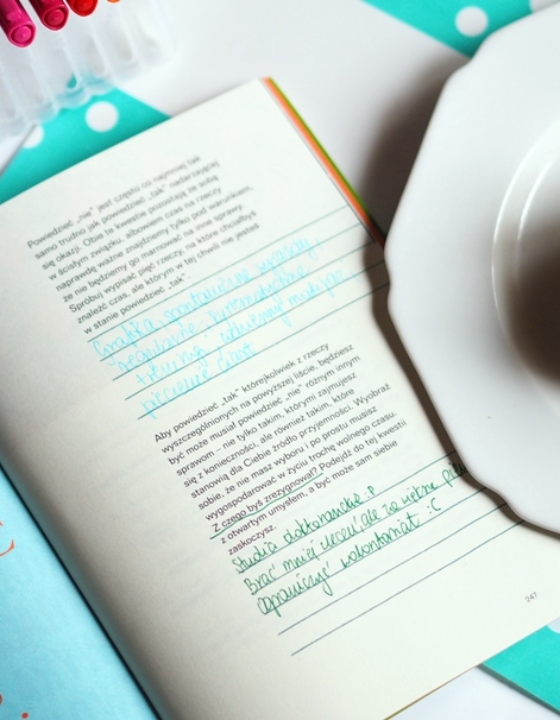 Powiedzieć „nie” jest często co najmniej tak
samo trudno jak powiedzieć „tak” nadarzającej
się okazji. Obie te kwestie pozostają ze sobą
w ścisłym związku, albowiem czas na rzeczy
naprawdę ważne znajdziemy tylko pod warunkiem,
że nie będziemy go marnować na inne sprawy.
Spróbuj wypisać pięć rzeczy, na które chciałbyś
znaleźć czas, ale którym w tej chwili nie jesteś
w stanie powiedzieć „tak”.
Grafika, spontaniczne wyjazdy,
regularne, systematyczne
treningi
pieczenie ciast
Aby powiedzieć „tak” którejkolwiek z rzeczy
wyszczególnionych na powyższej liście, będziesz
być może musiał powiedzieć „nie” różnym innym
sprawom – nie tylko takim, którymi zajmujesz
się z konieczności, ale również takim, które
stanowią dla Ciebie źródło przyjemności. Wyobraź
sobie, że nie masz wyboru i po prostu musisz
wygospodarować w życiu trochę wolnego czasu.
Z czego byś zrezygnował? Podejdź do tej kwestii
z otwartym umysłem, a być może sam siebie
zaskoczysz.
Studia doktoranckie :P
Brać mniej zleceń ale za większe
ograniczyć wolontariat :C
247